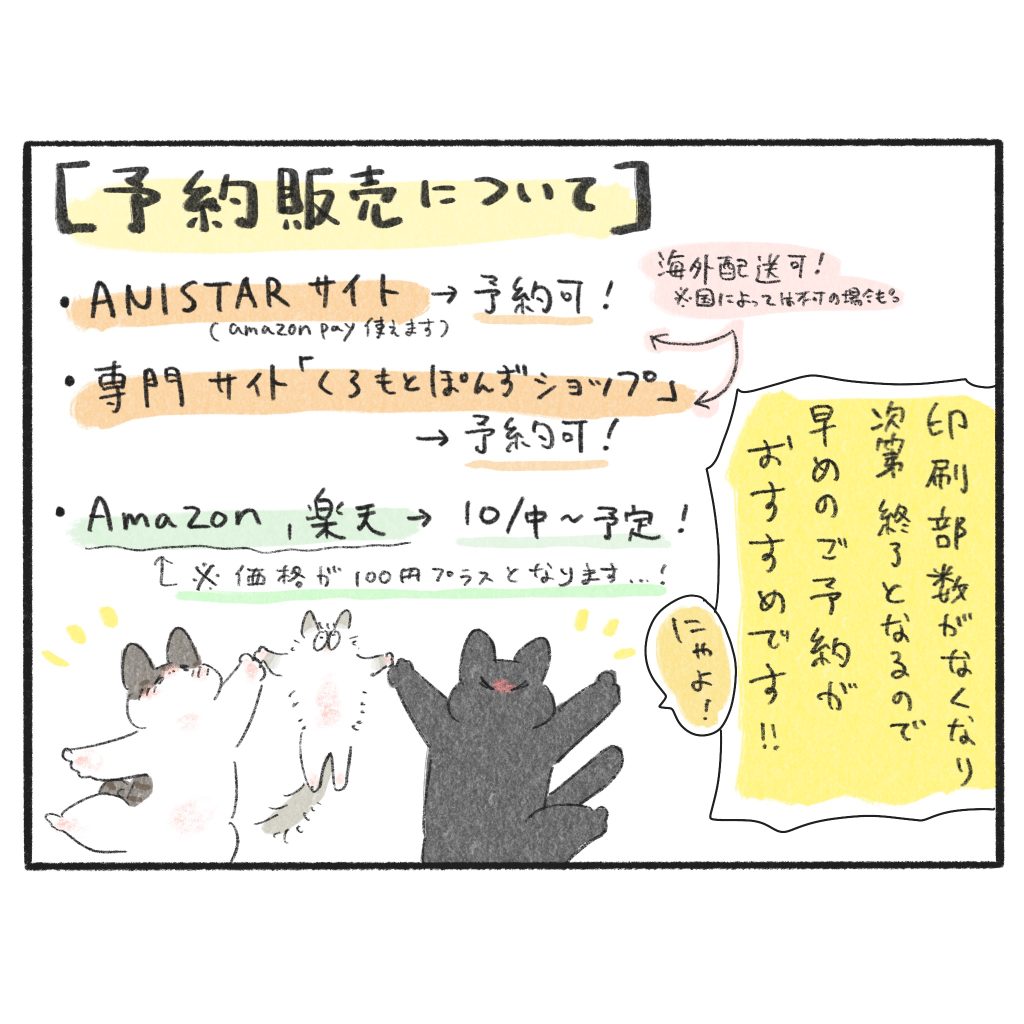 [予約販売について]
・ANISTARサイト→予約可!
(amazon pay 使えます)
海外配送可!
※国によっては不可の場合も。
・専門サイト「くろもとぽんずショップ」
→予約可!
・Amazon,楽天→10/中~予定!
※価格が100円プラスとなります...!
印刷部数がなくなり
次第終了となるので
早めのご予約が
おすすめです!!
にゃよ!